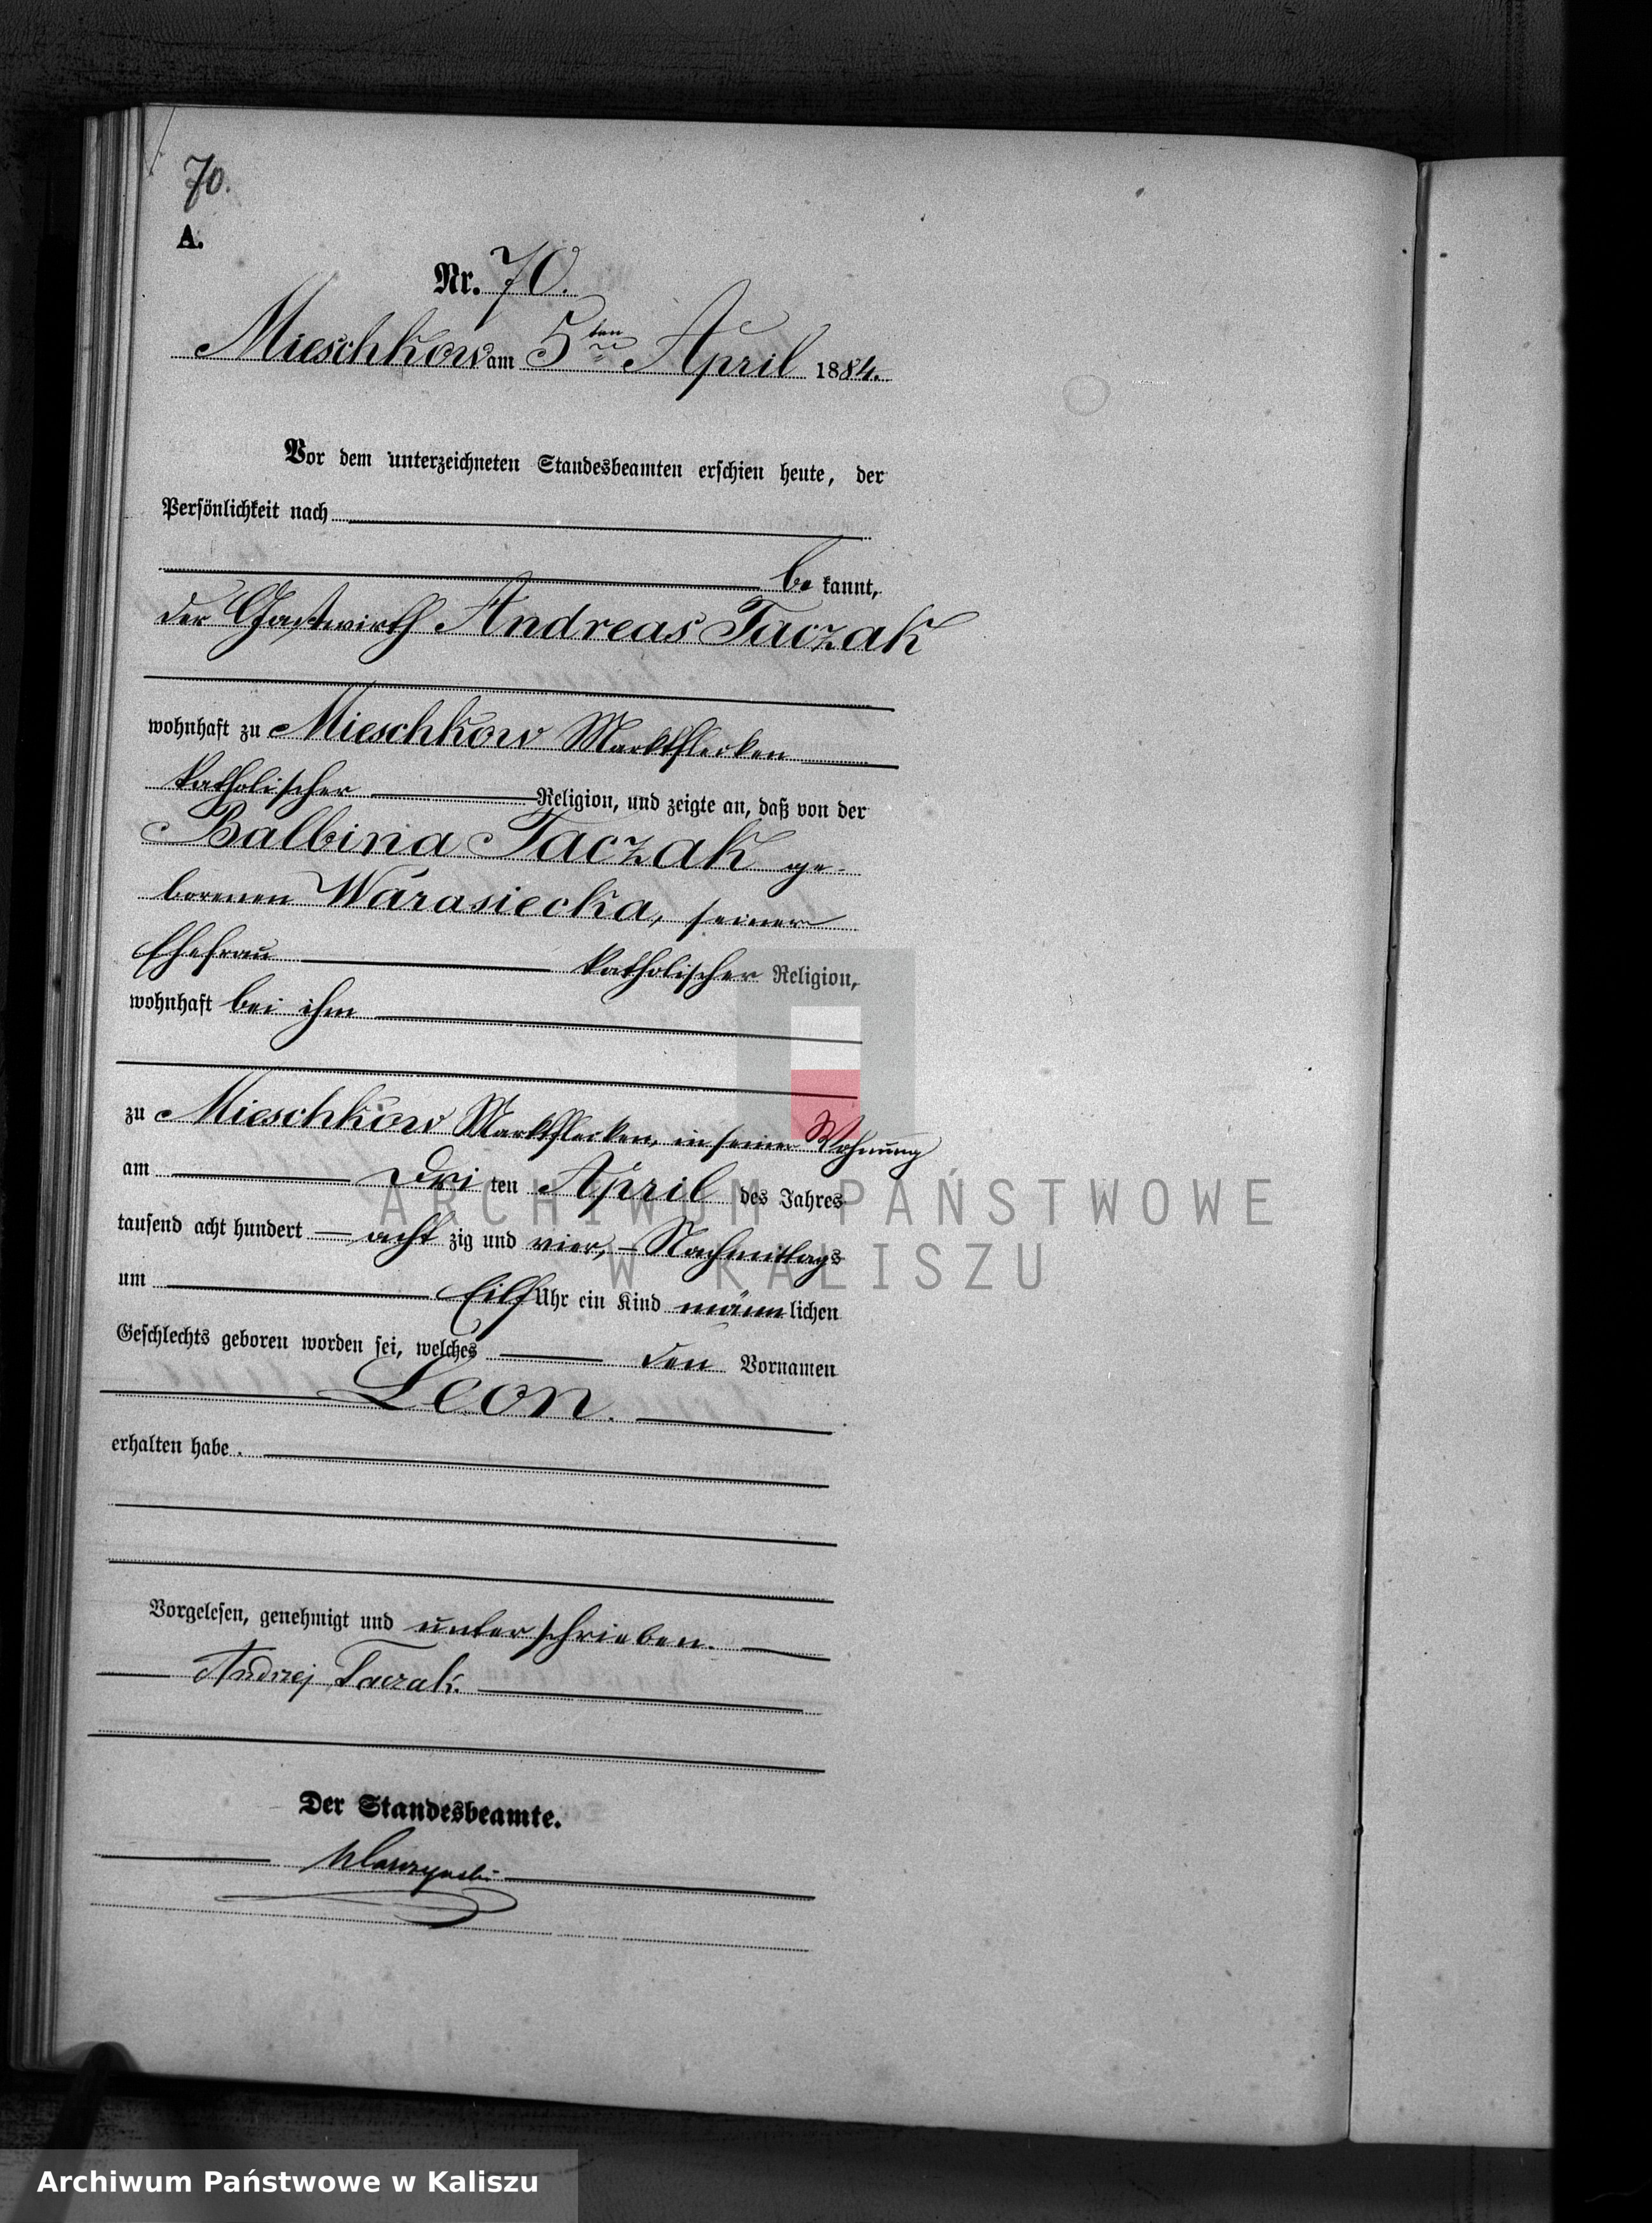 70.
A.
Nr. 70.
Mieschkow am 5ten April 1884.
Vor dem unterzeichneten Standesbeamten erschien heute, der
Persönlichkeit nach
be kannt,
der Gastwirth Andreas Taczak
wohnhaft zu Mieschkow Marktflecken
katholischer Religion, und zeigte an, daß von der
Balbina Taczak ge-
borenen Warasiecka, seiner
Ehefrau katholischer Religion,
wohnhaft bei ihm
zu Mieschkow Marktflecken, in seiner Wohnung
am Dri ten April des Jahres
tausend acht hundert acht zig und vier, Nachmittags
um Eilf Uhr ein Kind männ lichen
Geschlechts geboren worden sei, welches den Vornamen
Leon.
erhalten habe.
Vorgelesen, genehmigt und unterschrieben.
Andrzej Taczak.
Der Standesbeamte.
ARCHIWUM PAŃSTWOWE
W KALISZU
Archiwum Państwowe w Kaliszu